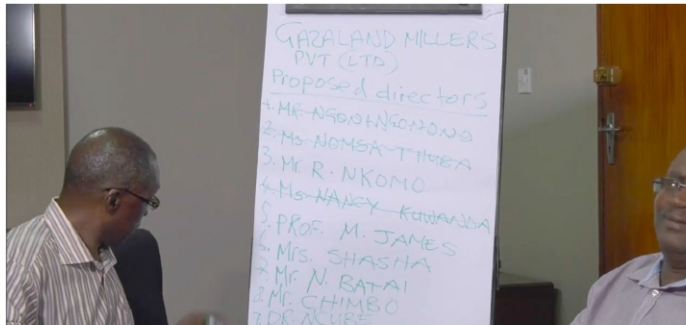 GAZALAND MILLERS
PVT (LTD)
Proposed directors
1. MR NGONI NGOHONO
2. Ms NOMSA TIMBA
3. Mr R. NKOMO
4. Ms NANCY KUWANDA
5. PROF. M. JAMES
6. Mrs. SHASHA
7. Mr. N. BATAI
8. Mr. CHIMBO
9. DR. NCUBE